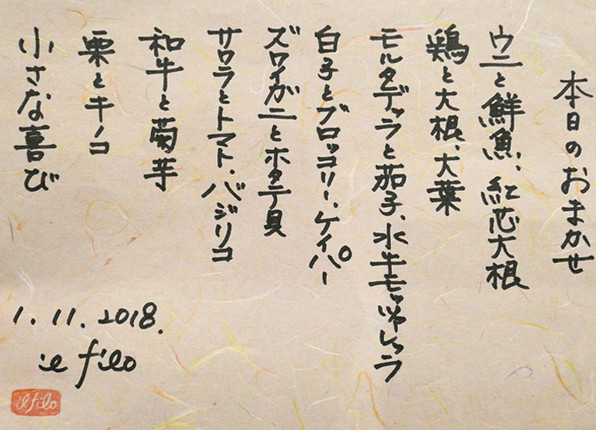 本日のおまかせ
ウニと鮮魚、紅芯大根
鶏と大根、大葉
モルタデッラと茄子、水牛モッツァレッラ
白子とブロッコリー、ケイパー
ズワイガニとホタテ貝
サワラとトマト、バジリコ
和牛と菊芋
栗とキノコ
小さな喜び
1.11.2018.
il filo
il filo